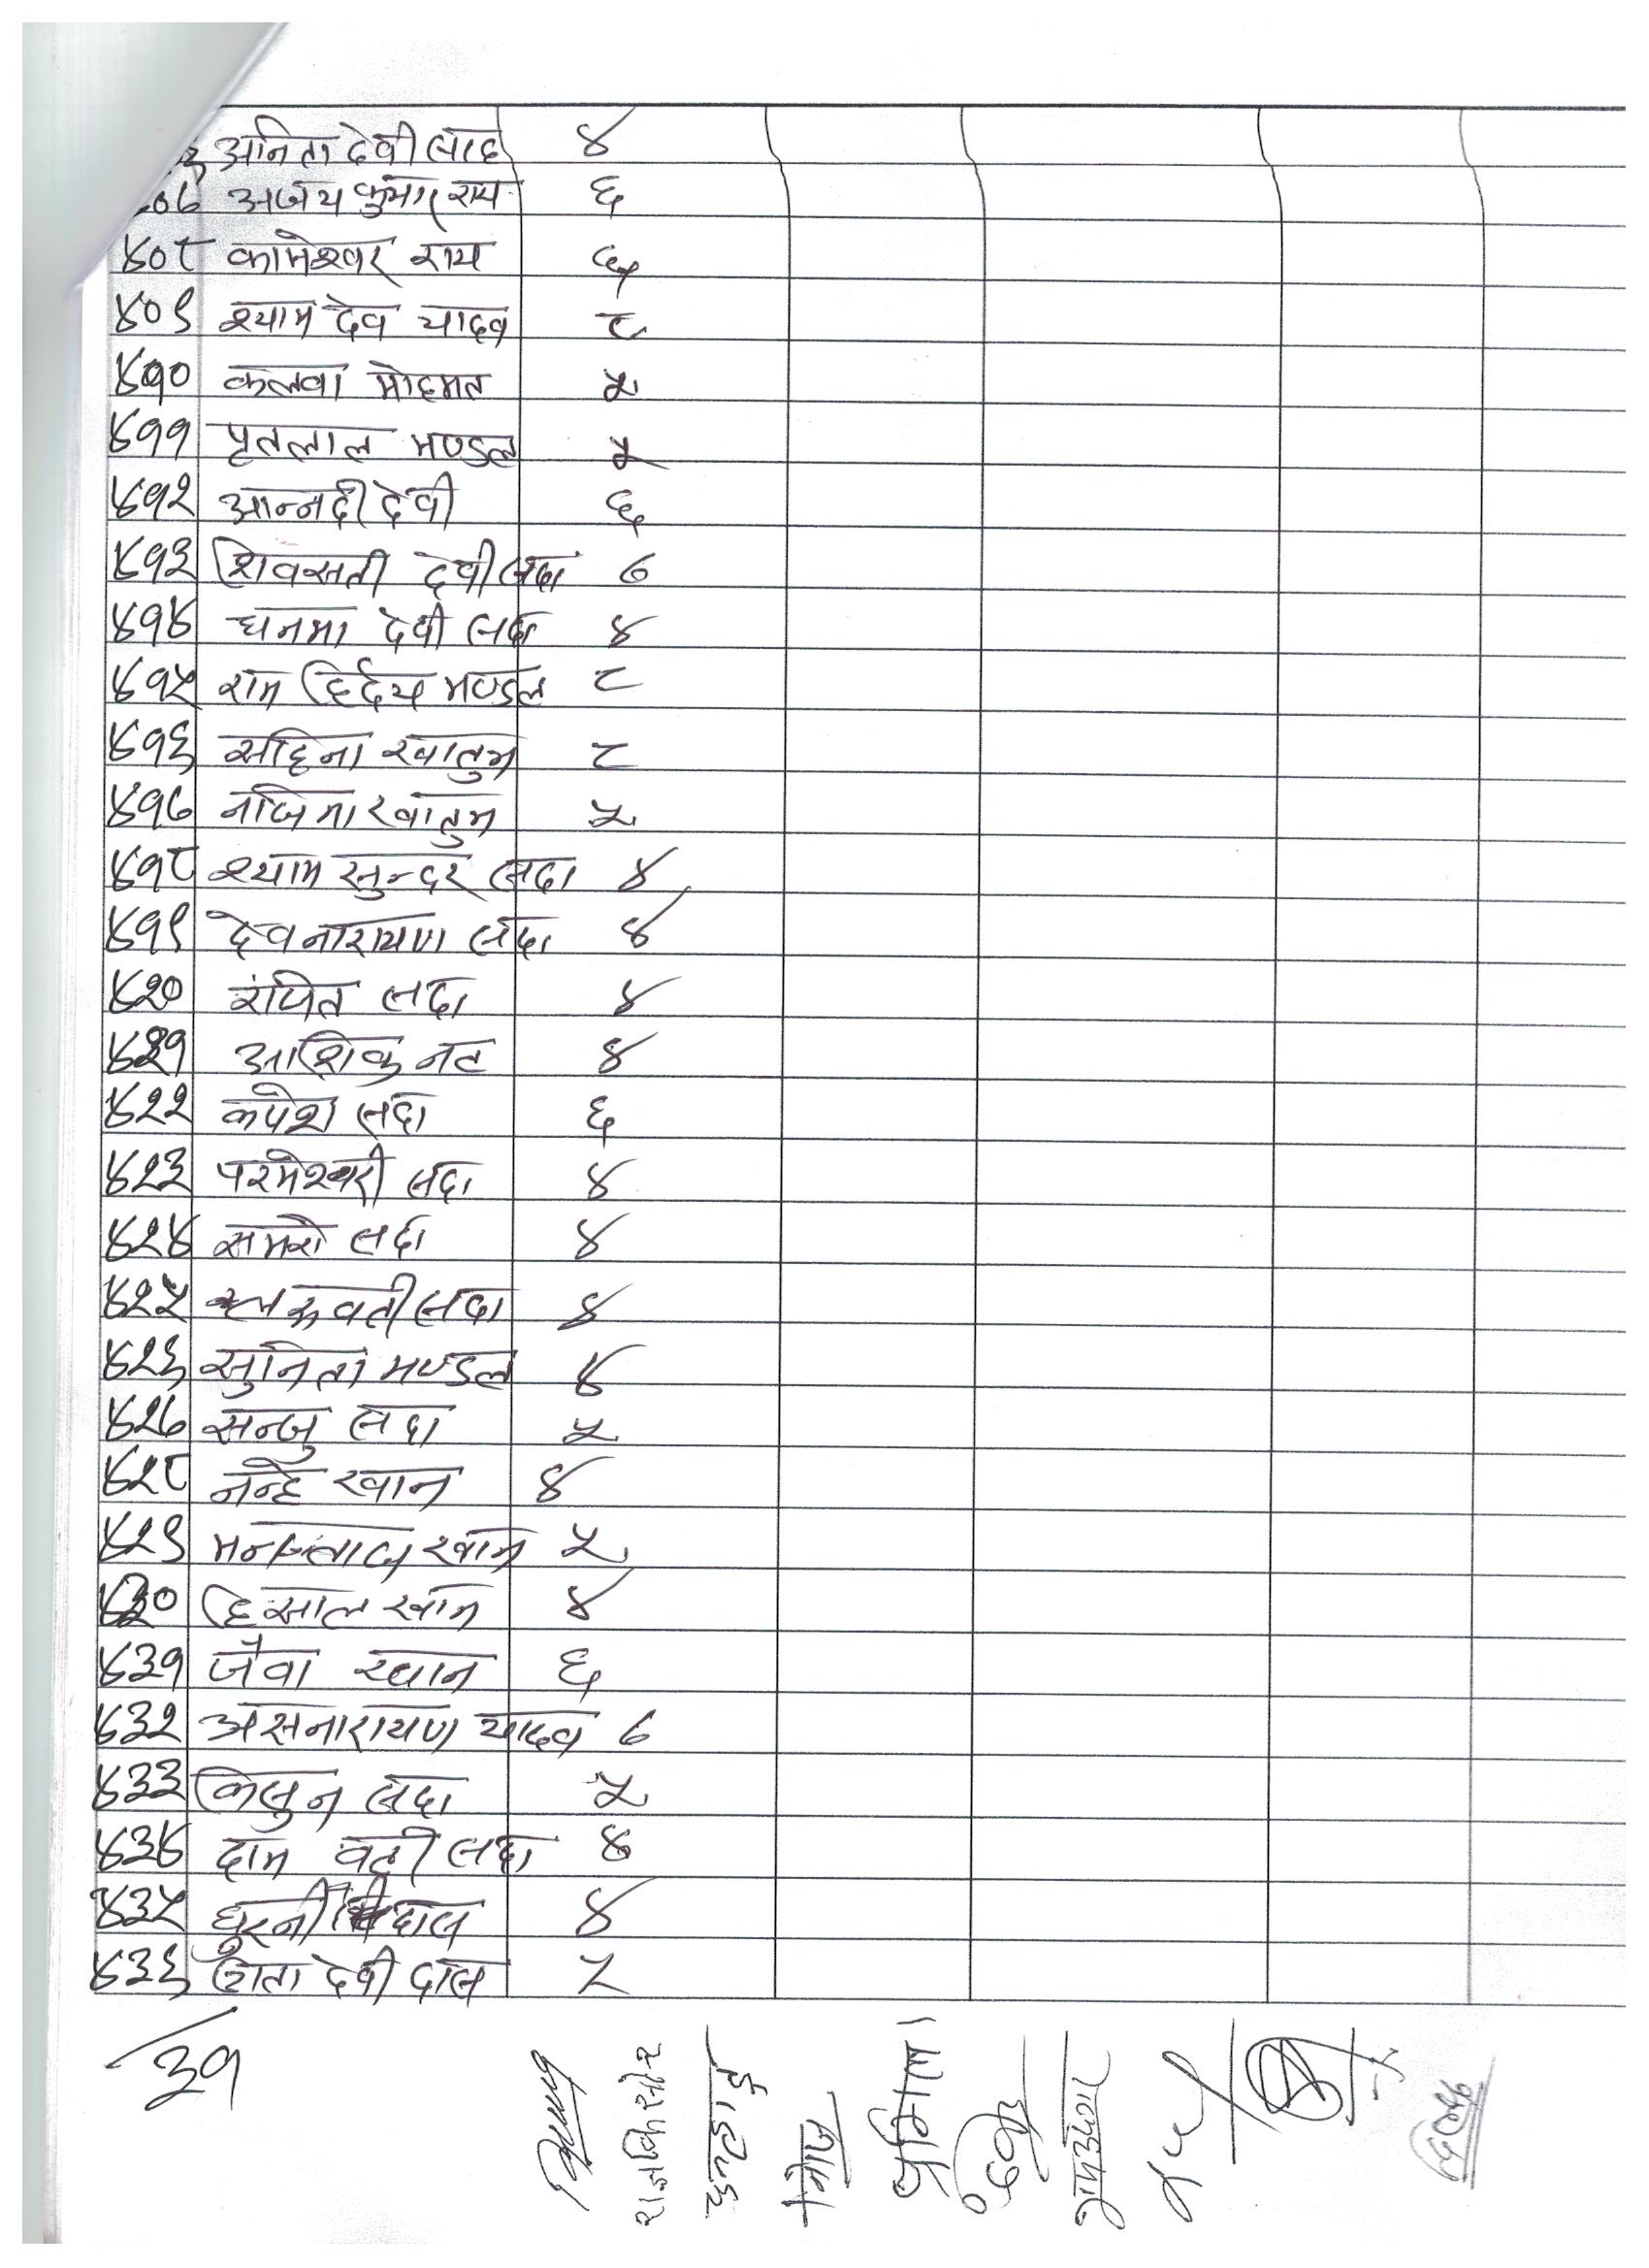 अनिता देवी साह ४
अजय कुमार राय ६
४०८ कामेश्वर राय ६
४०९ श्याम देव यादव ८
४१० कलवा मोहमत ५
४११ पृतलाल मण्डल ५
४१२ आन्नदी देवी ६
४१३ शिवसती देवी सदा ७
४१४ धनमा देवी सदा ४
४१५ राम हिर्दय मण्डल ८
४१६ सहिना खातुम ८
४१७ नजिमा खातुम ५
४१८ श्याम सुन्दर सदा ४
४१९ देवनारायण सदा ४
४२० रंजित सदा ४
४२१ आशिक नट ४
४२२ कपेश सदा ६
४२३ परमेश्वरी सदा ४
४२४ समरो सदा ४
४२५ सदा ४
४२६ सुनिता मण्डल ४
४२७ सन्जु सदा ५
४२८ नन्हे खान ४
४२९ खान ५
४३० हिसाल खान ४
४३१ जैवा खान ६
४३२ असनारायण यादव ७
४३३ मिलुन सदा ५
४३४ दाम वती सदा ४
४३५ धुरनी दास ४
४३६ गिता देवी दास ५
३१
राजकिसोर